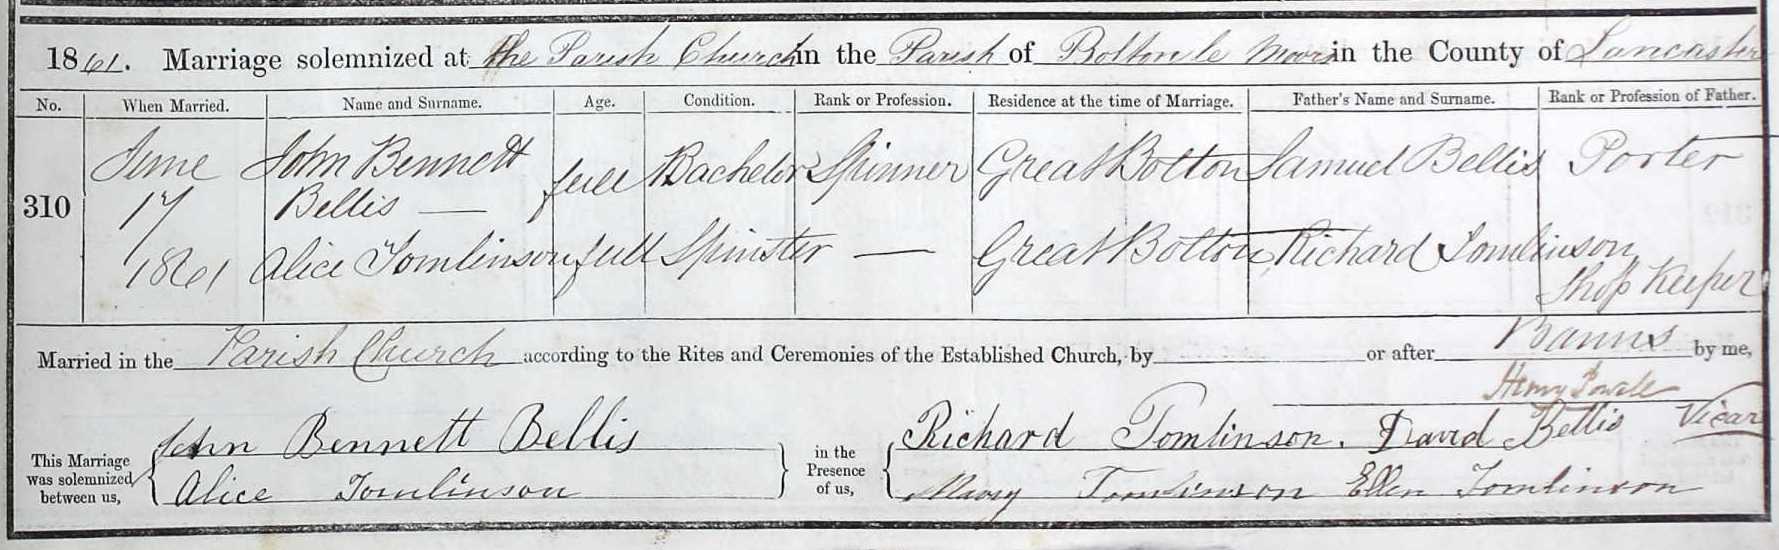 1861. Marriage solemnized at the Parish Church in the Parish of Bolton le Moors in the County of Lancaster
No. When Married. Name and Surname. Age. Condition. Rank or Profession. Residence at the time of Marriage. Father's Name and Surname. Rank or Profession of Father.
310 June 17 1861 John Bennett Bellis full Bachelor Spinner Great Bolton Samuel Bellis Porter
Alice Tomlinson full Spinster — Great Bolton Richard Tomlinson Shop Keeper
Married in the Parish Church according to the Rites and Ceremonies of the Established Church, by or after Banns by me,
Henry Powell Vicar
This Marriage was solemnized between us, John Bennett Bellis Alice Tomlinson in the Presence of us, Richard Tomlinson. David Bellis
Mary Tomlinson Ellen Tomlinson